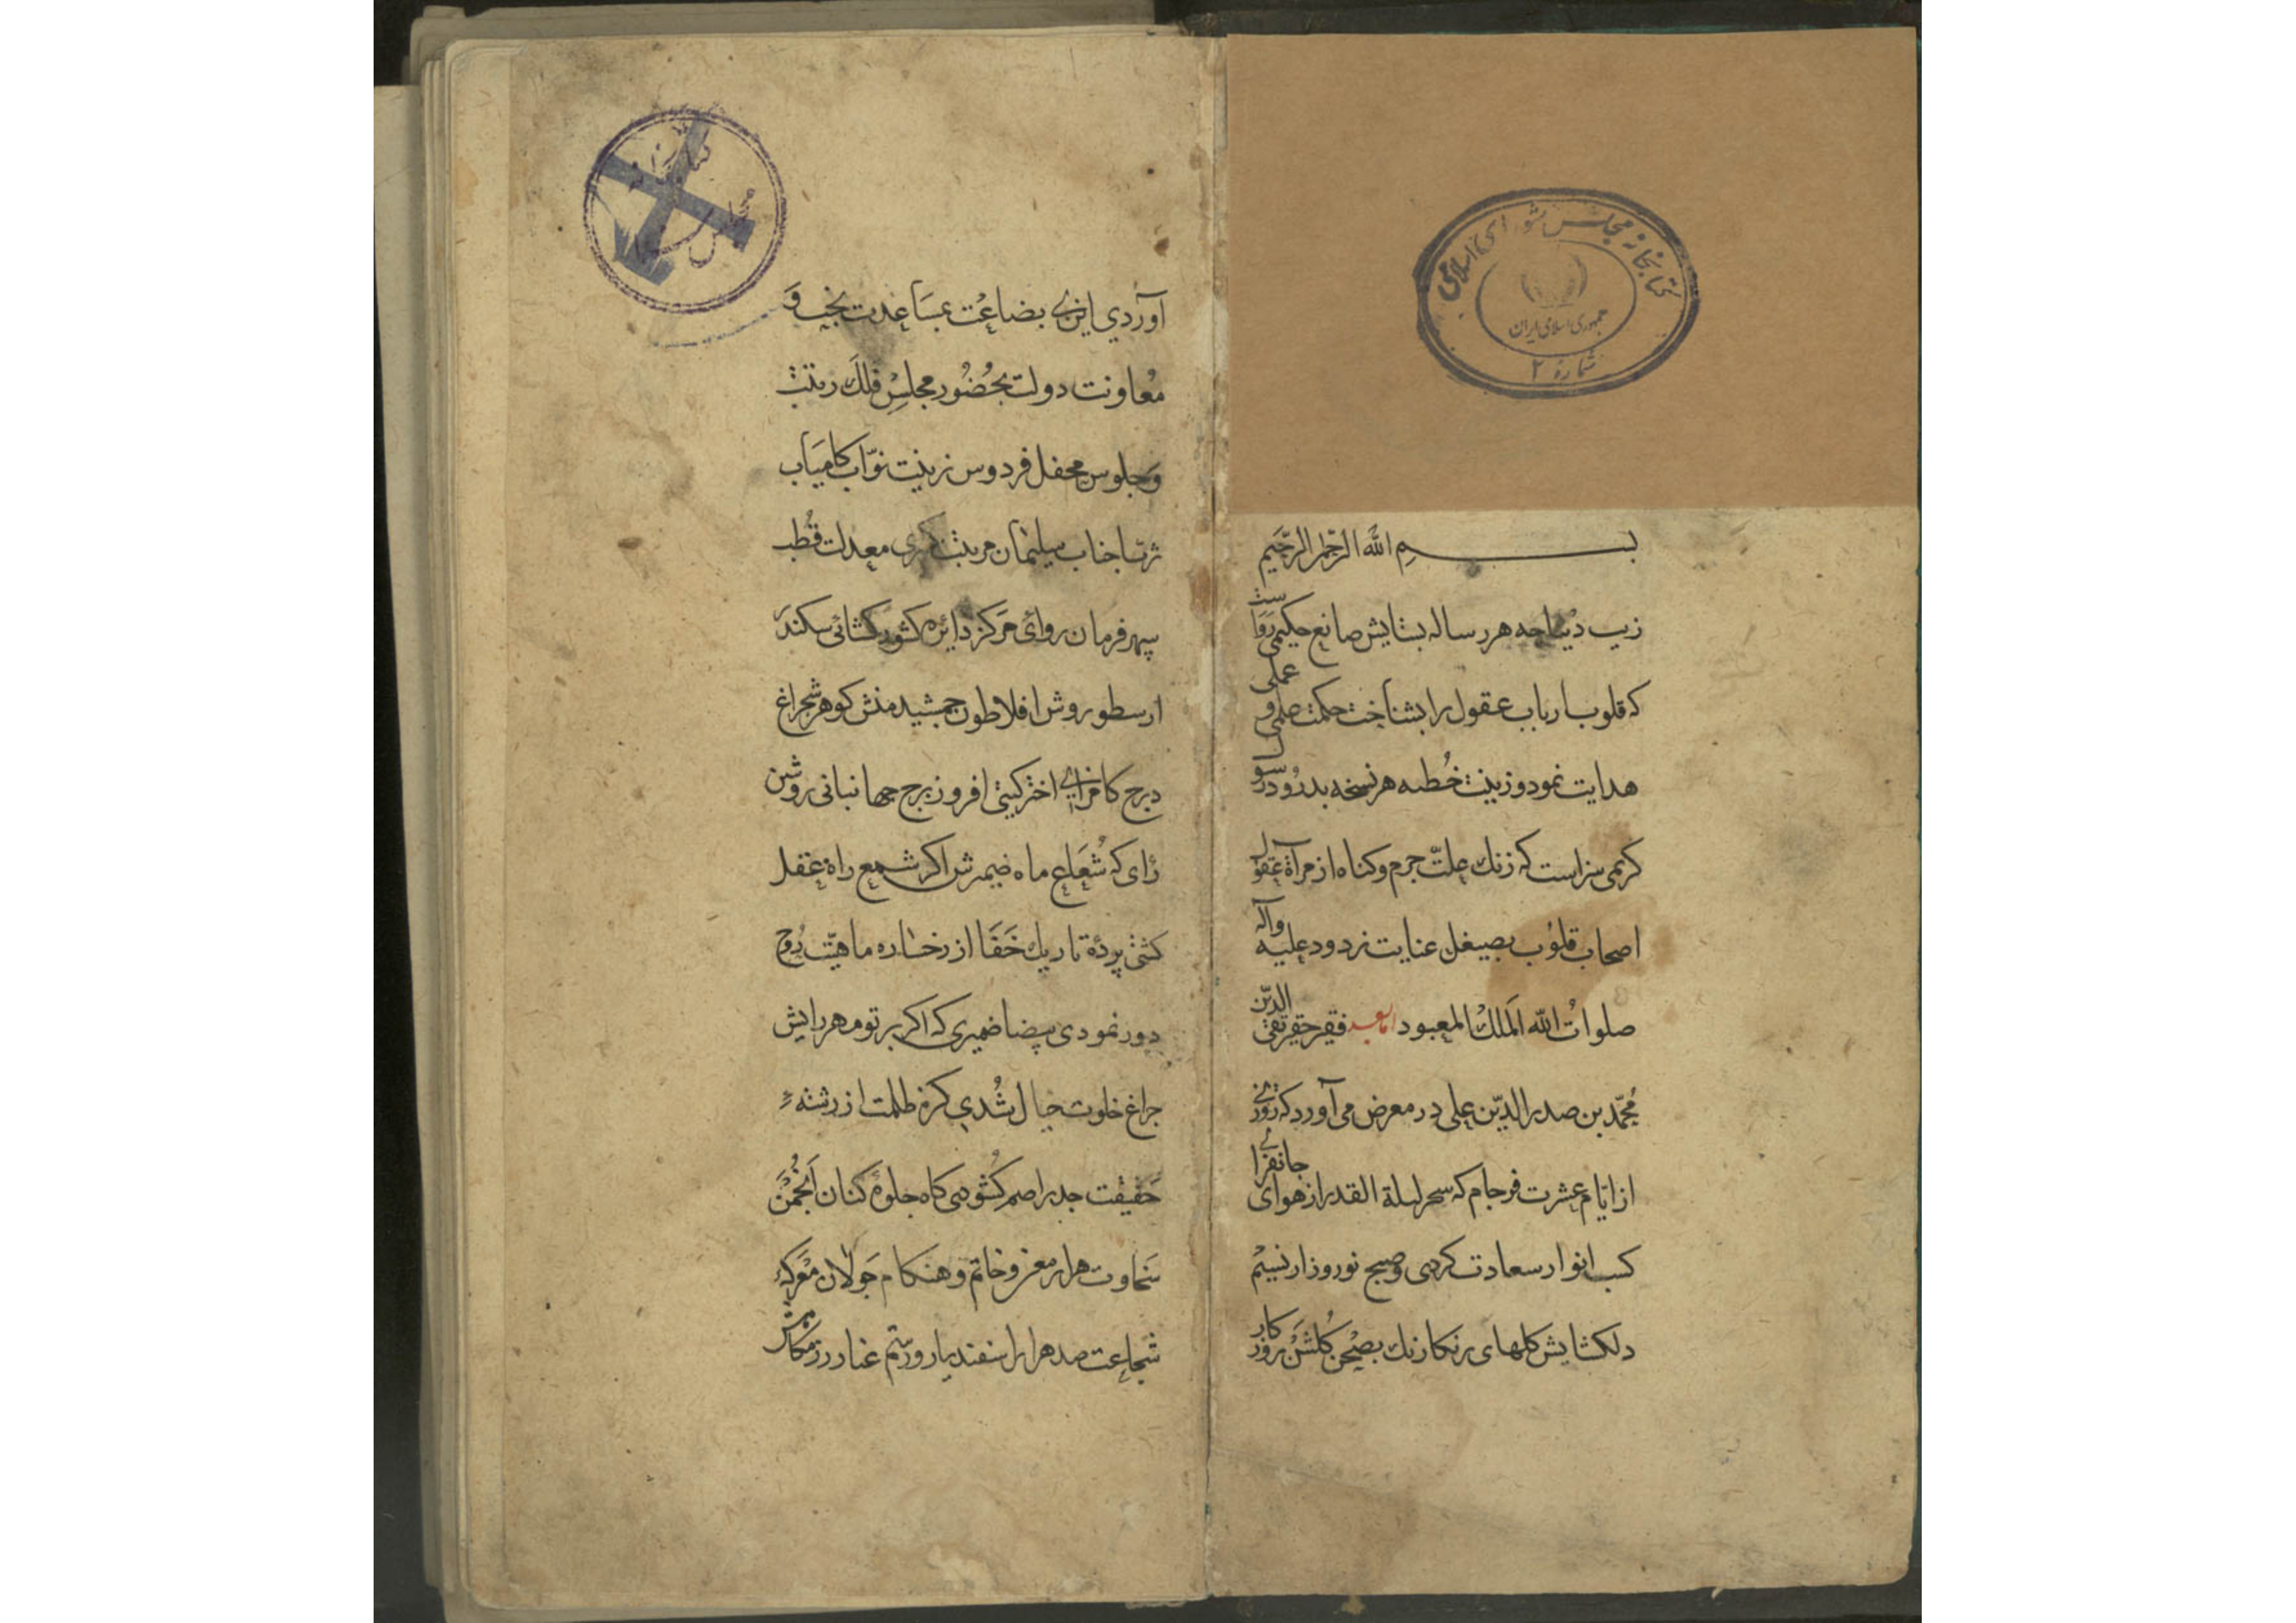 کتابخانه مجلس شورای اسلامی
جمهوری اسلامی ایران
شماره ۲
بسم الله الرحمن الرحیم
زیب دیباجه هر رساله بستایش صانع حکیمی رواست
که قلوب ارباب عقول را بشناخت حکمت علمی و عملی
هدایت نمود و زینت خطبه هر نسخه بدرود رسول
کریمی سزاست که زنك علّت جرم و کناه از مرآة عقول
اصحاب قلوُب بصیغل عنایت زدود علیه وآله
صلواتُ الله المَلكُ المعبود امابعد فقیر حقیر تقی الدّین
مُحمّد بن صدرالدّین علی در معرض می آورد که روزی
از ایام عشرت فرجام که سحر لیلة القدر از هوای جانفزای
کسب انوار سعادت کردی و صبح نوروز از نسیم
دلکشایش کلهای رنکارنك بصحن کلشن روزکار
آوردی این بی بضاعت بمساعدت بخت و
مُعاونت دولت بحُضُور مجلسِ فلك رتبت
وَجلوس محفل فردوس زینت نوّاب کامیاب
ثریّا جناب سلیمان مرتبت کسری معدلت قُطب
سپهر فرمان روائی مَرکز دائره کشور کشائی سکندر
ارسطو روش افلاطون جمشید منش کوهر شبچراغ
درج کامرانی اختر کیتی افروز برج جهانبانی روشن
رٰای که شُعَاع ماه ضمیرش اکر شمع راه عقل
کشتی پردهٔ تاریك خَفَا از رخساره ماهیّت رُوح
دور نمودی بیضا ضمیری که اکر پرتو مهر رایش
چراغ خلوت خیال شُدی کره ظلمت از رشته
حَقیقت جذر اصم کُشودی کاه جلوهٔ کنان اَنجُمَن
سَخاوت هزار معن و حاتم و هنکام جَولان مَعرکهٔ
شجاعت صد هزار اسفندیار و رستم عنان در رمکابش